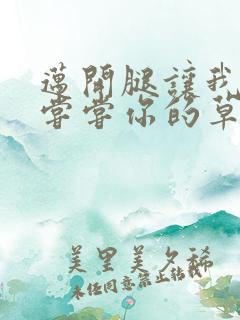 邁開腿讓我
嘗嘗你的草
美里美夕稀
未经同意禁止転載